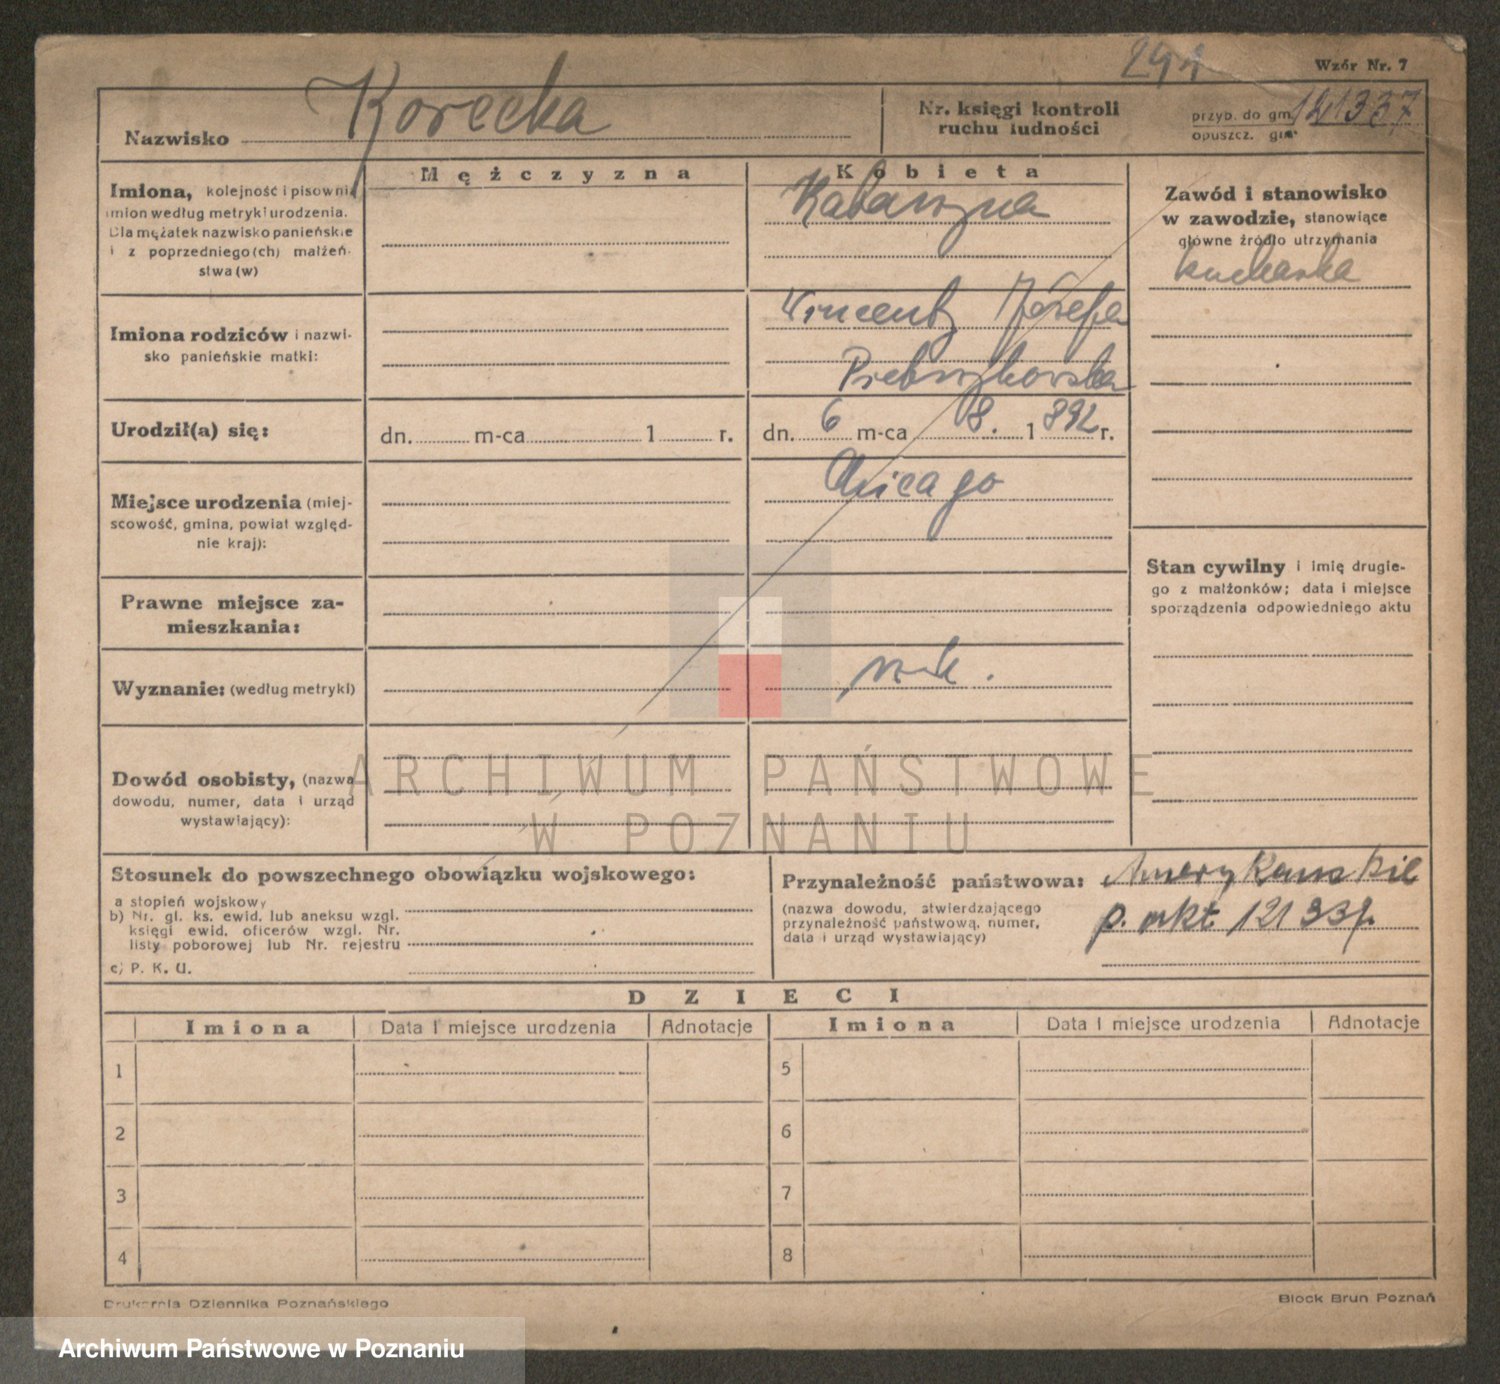 Wzór Nr. 7
Nazwisko Korecka
Nr. księgi kontroli
ruchu ludności
przyb. do gm. 121337
opuszcz. gm.
Mężczyzna
Kobieta
Imiona, kolejność i pisownia
imion według metryki urodzenia.
Dla mężatek nazwisko panieńskie
i z poprzedniego(ch) małżeń-
stwa(w)
Katarzyna
Zawód i stanowisko
w zawodzie, stanowiące
główne źródło utrzymania
kucharka
Imiona rodziców i nazwi-
sko panieńskie matki:
Vincenty Józefa
Urodził(a) się:
dn. m-ca 1 r.
dn. 6 m-ca 8. 1892 r.
Miejsce urodzenia (miej-
scowość, gmina, powiat względ-
nie kraj):
Chicago
Stan cywilny i imię drugie-
go z małżonków; data i miejsce
sporządzenia odpowiedniego aktu
Prawne miejsce za-
mieszkania:
Wyznanie: (według metryki)
Dowód osobisty, (nazwa
dowodu, numer, data i urząd
wystawiający):
ARCHIWUM PAŃSTWOWE
W POZNANIU
Stosunek do powszechnego obowiązku wojskowego:
a stopień wojskowy
b) Nr. gl. ks. ewid. lub aneksu wzgl.
księgi ewid. oficerów wzgl. Nr.
listy poborowej lub Nr. rejestru
c) P. K. U.
Przynależność państwowa: Amerykańskie
(nazwa dowodu, stwierdzającego
przynależność państwową, numer,
data i urząd wystawiający)
p. akt
DZIECI
Imiona Data i miejsce urodzenia Adnotacje Imiona Data i miejsce urodzenia Adnotacje
1 5
2 6
3 7
4 8
Drukarnia Dziennika Poznańskiego
Block Brun Poznań
Archiwum Państwowe w Poznaniu